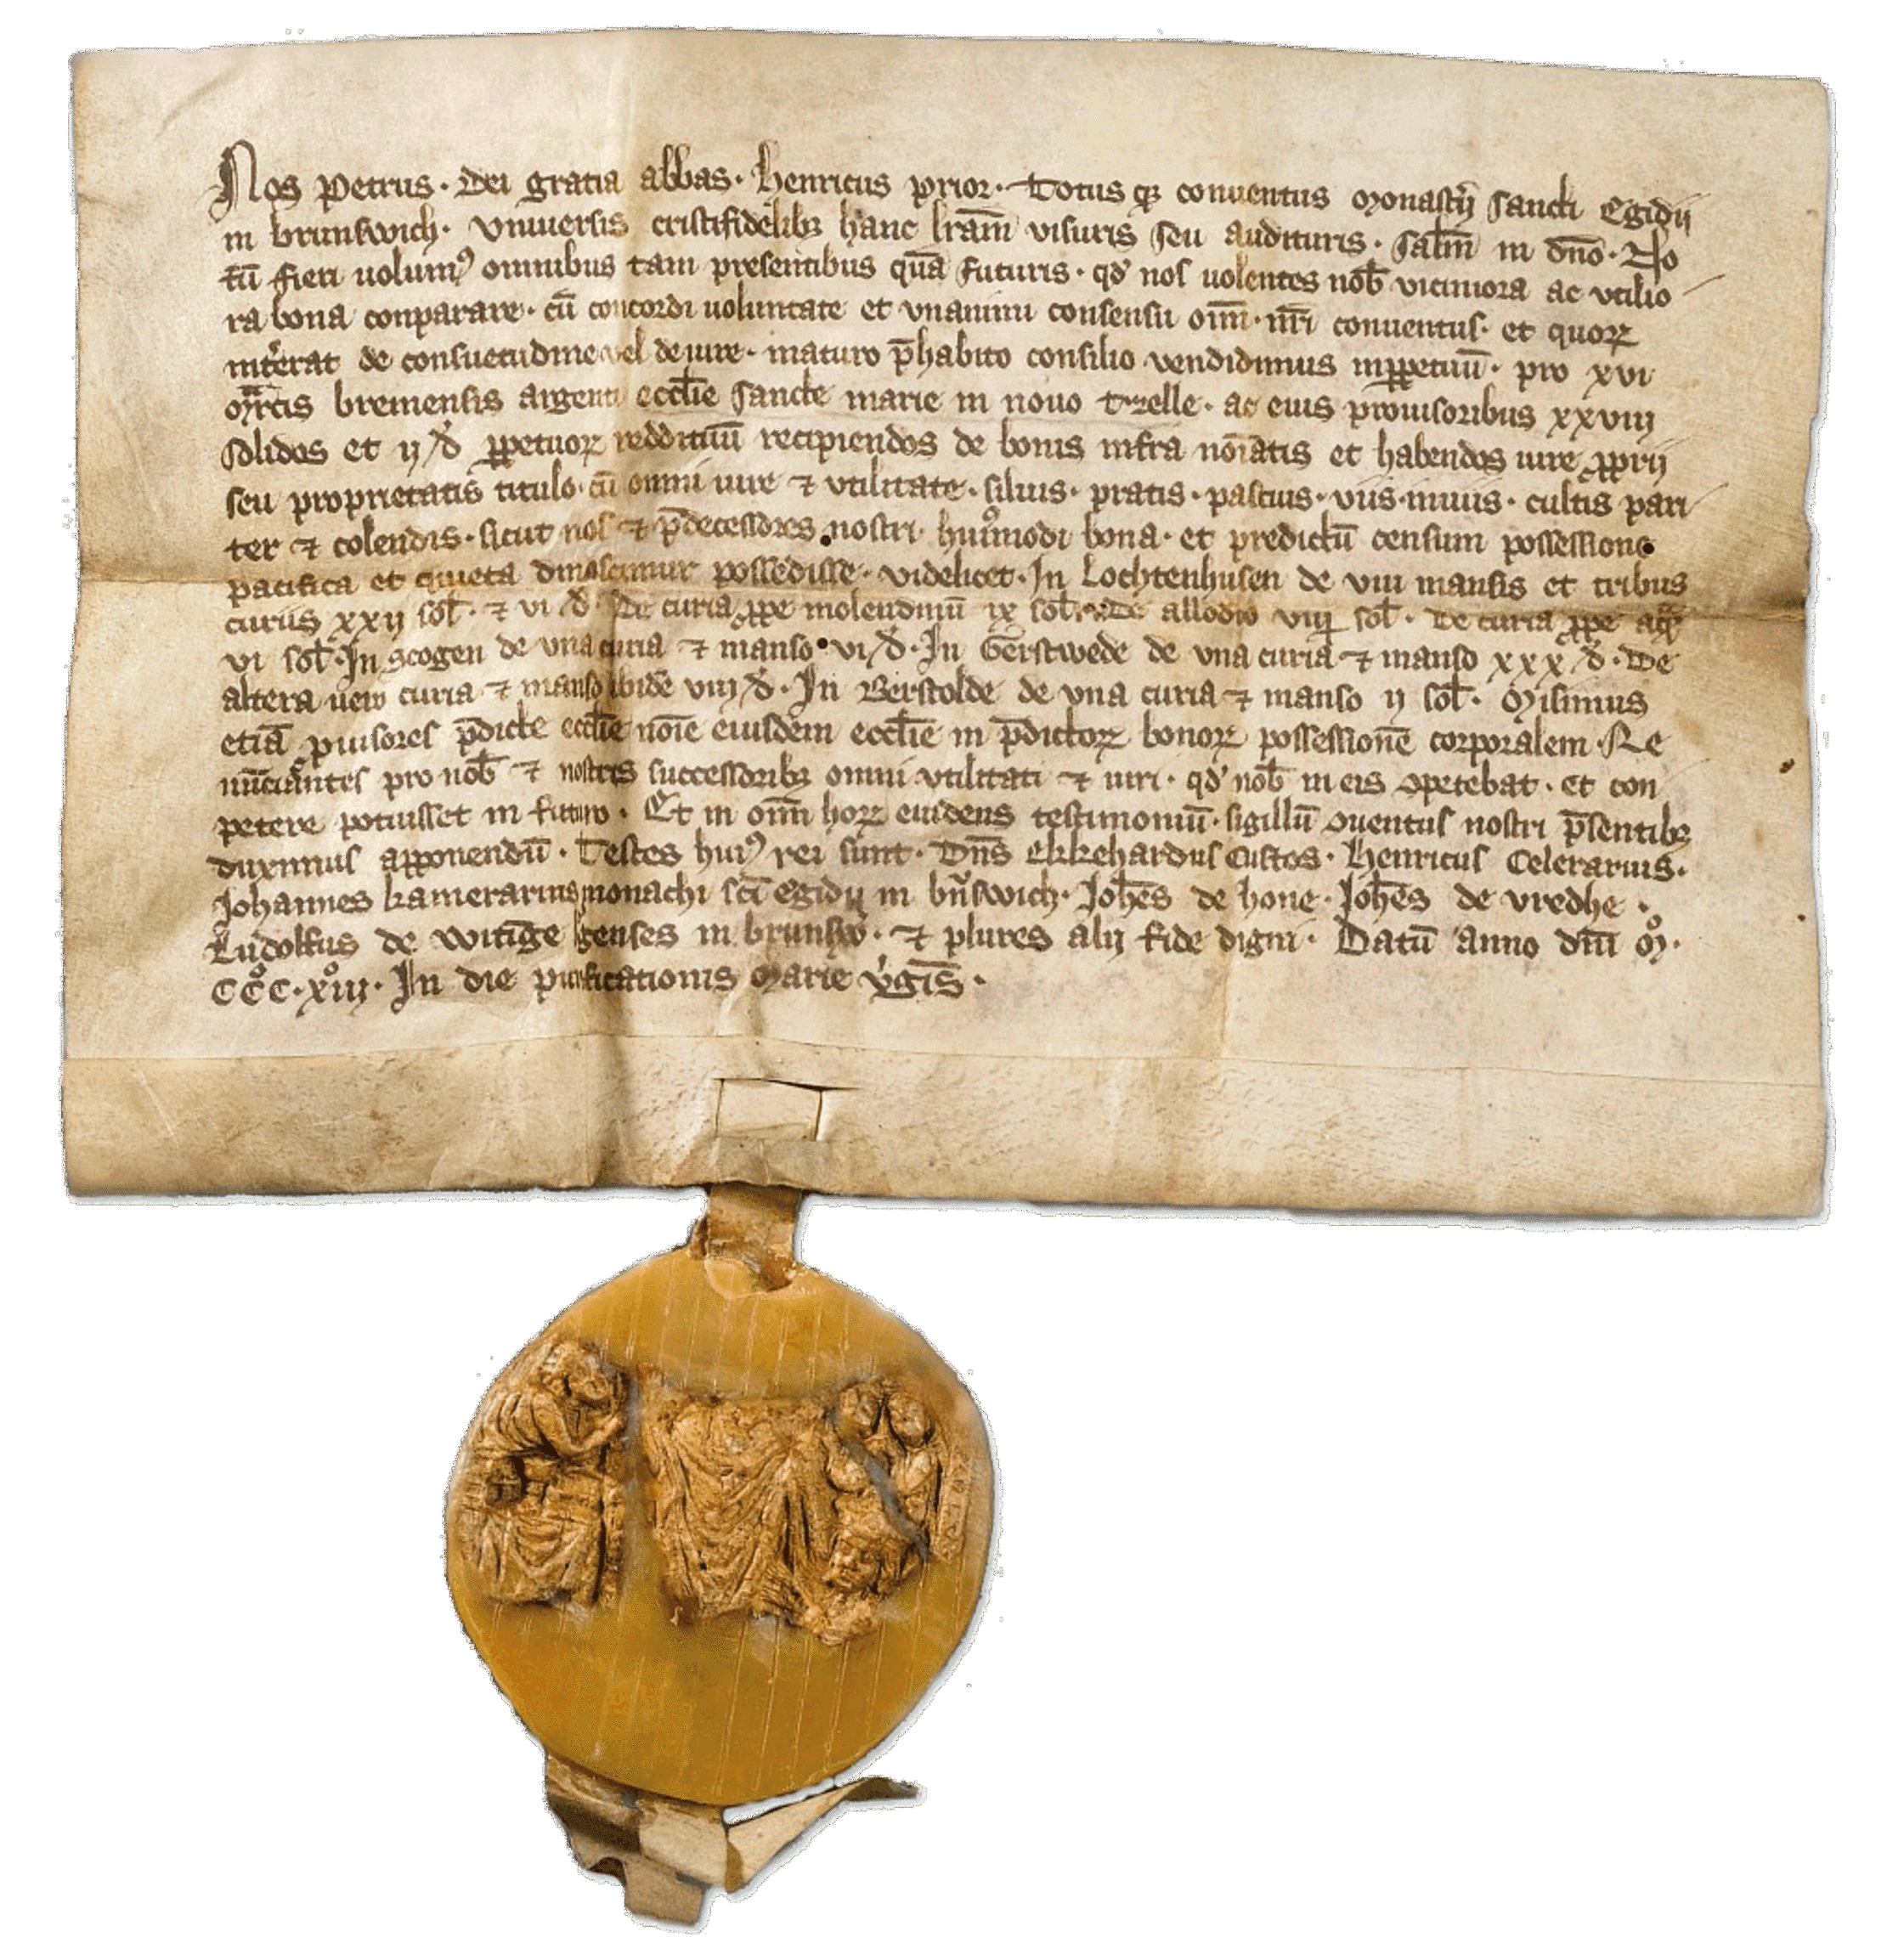 Nos Petrus · dei gratia abbas · Henricus prior · Totusq̨ conuentus monast̄ij sancti Egidij
in brunswich · Vniuersis cristifidelibꝫ hanc lr̄am visuris seu audituris · sal̄m in dn̄o · No
tū fieri uolumꝰ omnibus tam presentibus quā futuris · qd' nos uolentes nob̄ viciniora ac vtilio
ra bona conparare · cū concordi uoluntate et vnanimi consensu om̄ · nr̄i conuentus · et quoꝝ
int̄erat de consuetudine vel de iure · maturo p̄habito consilio vendidimus inꝑpetuū · pro xvi
mᷓrcis bremensis argenti eccl̄ie sancte marie in nouo tzelle · ac eius prouisoribus xxviij
solidos et ij d' ꝑpetuoꝝ reddituū recipiendos de bonis infra nōīatis et habendos iure ꝓprij
seu proprietatis titulo · cū omni iure ⁊ vtilitate · siluis · pratis · pascuis · viis · inuiis · cultis pari
ter ⁊ colendis · sicut nos ⁊ p̄decessores nostri huiᷤmodi bona · et predictū censum possessione
pacifica et quieta dinoscimur possedisse · videlicet · In Lochtenhusen de viii mansis et tribus
curiis xxij sol̄ · ⁊ vi d' · De curia ꝓpe molendinū ix sol̄ · De allodio viij sol̄ · De curia ꝓpe
vi sol̄ · In scogen de vna curia ⁊ manso · vi d' · In Gerstwede de vna curia ⁊ manso xxx d' · De
altera uero curia ⁊ manso ibidē viij d' · In Berstolde de vna curia ⁊ manso ij sol̄ · Misimus
etiā ꝓuisores p̄dicte eccl̄ie nōīe eiusdem eccl̄ie in p̄dictoꝝ bonoꝝ possessionē corporalem · Re
nūciantes pro nob̄ ⁊ nostris successoribꝫ omni vtilitati ⁊ iuri · qd' nob̄ in eis ꝯpetebat · et con
petere potuisset in futuro · Et in om̄ hoꝝ euidens testimoniū · sigillū ꝯuentus nostri p̄sentibꝫ
duximus apponendū · Testes huiꝰ rei sunt · Dn̄s Ekkehardus Custos · Henricus Celerarius ·
Johannes kamerarius monachi sc̄i egidij in bꝛ̄nswich · Joh̄es de hone · Joh̄es de vredhe ·
Ludolfus de Witīge burgenses in brunsw̄ · ⁊ plures alij fide digni · Datū anno dn̄i mͦ ·
CCͦC · xͦiij · In die purificationis Marie v̄gīs ·